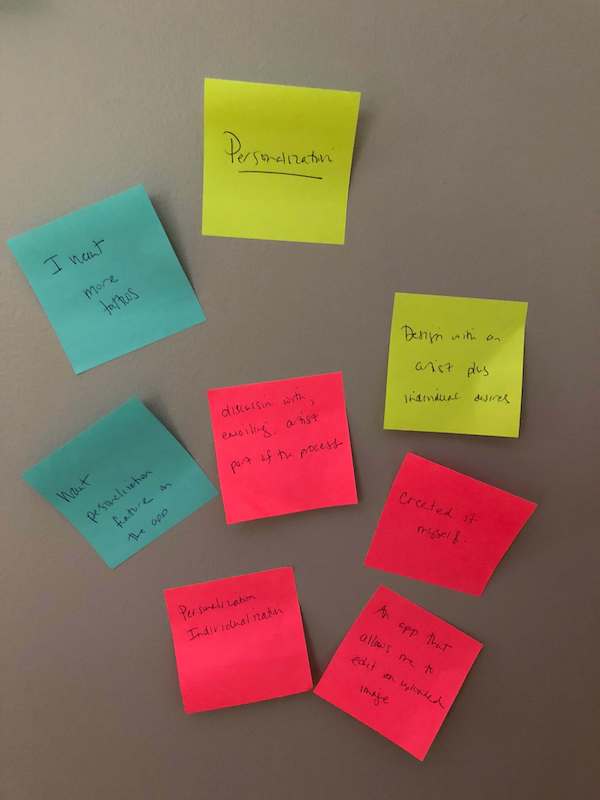 Personalization
I want
more
tattoos
Design with an
artist plus
individual desires
discussion with,
emailing, artist
part of the process
Want
personalization
feature on
the app
Created it
myself.
Personalization
Individualization
An app that
allows me to
edit an uploaded
image